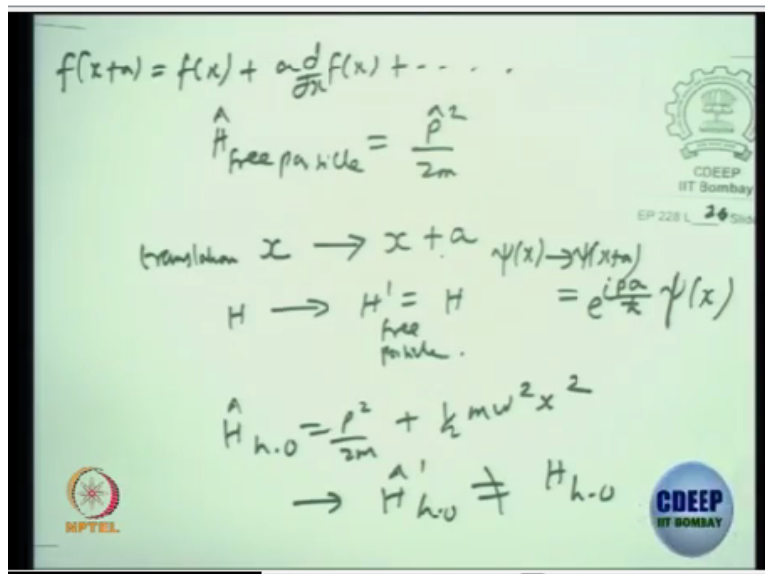 f(x+a) = f(x) + a d/dx f(x) + - - - - .
Ĥ free particle = p̂² / 2m
CDEEP
IIT Bombay
EP 228 L 26 Slide
translation x → x + a ψ(x) → ψ(x+a)
H → H' = H = e^{ipa/ħ} ψ(x)
free
particle.
Ĥ h.o = p²/2m + ½ mω²x²
→ Ĥ' h.o ≠ H h.o
NPTEL
CDEEP
IIT BOMBAY